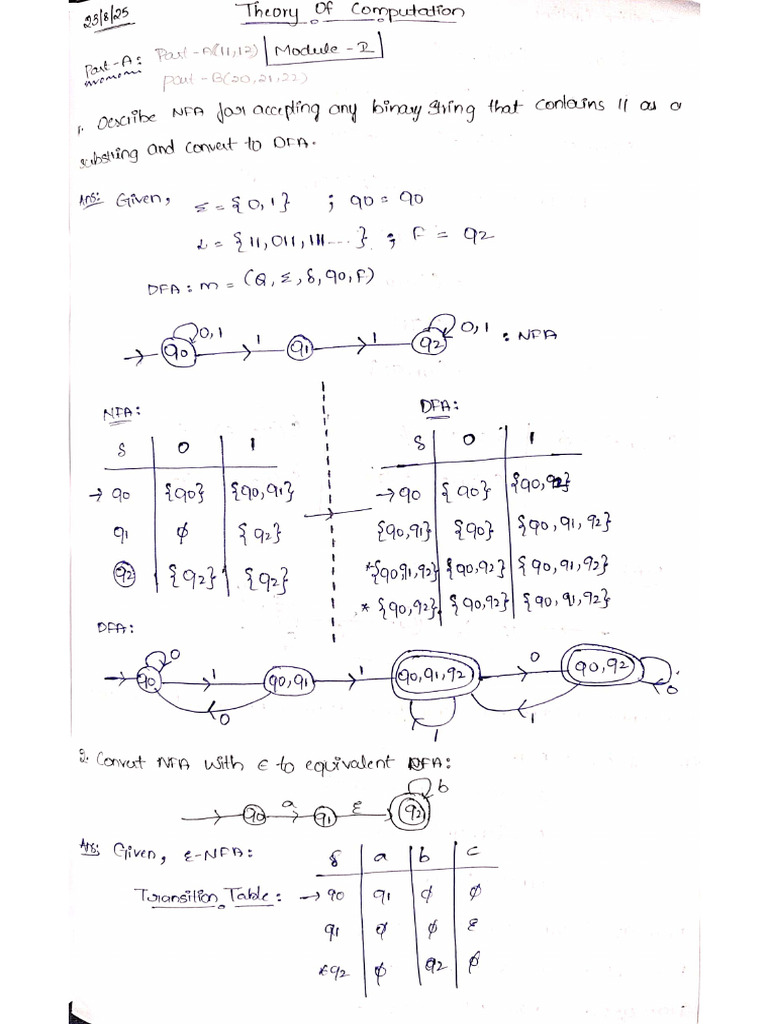 23/8/25
Theory Of Computation
Part-A: Part-A(11,12) Module-II
Part-B(20,21,22)
1. Describe NFA for accepting any binary string that contains 11 as a
substring and convert to DFA.
Ans: Given, Σ = {0,1} ; q0 = q0
L = {11,011,111....} ; F = q2
DFA: m = (Q, Σ, δ, q0, F)
q0 0,1 1 q1 1 q2 0,1 : NFA
NFA: DFA:
δ 0 1 δ 0 1
→q0 {q0} {q0,q1} →q0 {q0} {q0,q1}
q1 ϕ {q2} {q0,q1} {q0} {q0,q1,q2}
q2 {q2} {q2} *{q0,q1,q2} {q0,q2} {q0,q1,q2}
*{q0,q2} {q0,q2} {q0,q1,q2}
DFA:
q0 0 1 q0,q1 1 q0,q1,q2 0 q0,q2 0
0 1 1
2. Convert NFA with ε to equivalent DFA:
q0 a q1 ε q2 b
Ans: Given, ε-NFA: δ a b c
Transition Table: →q0 q1 ϕ ϕ
q1 ϕ ϕ ε
*q2 ϕ q2 ϕ